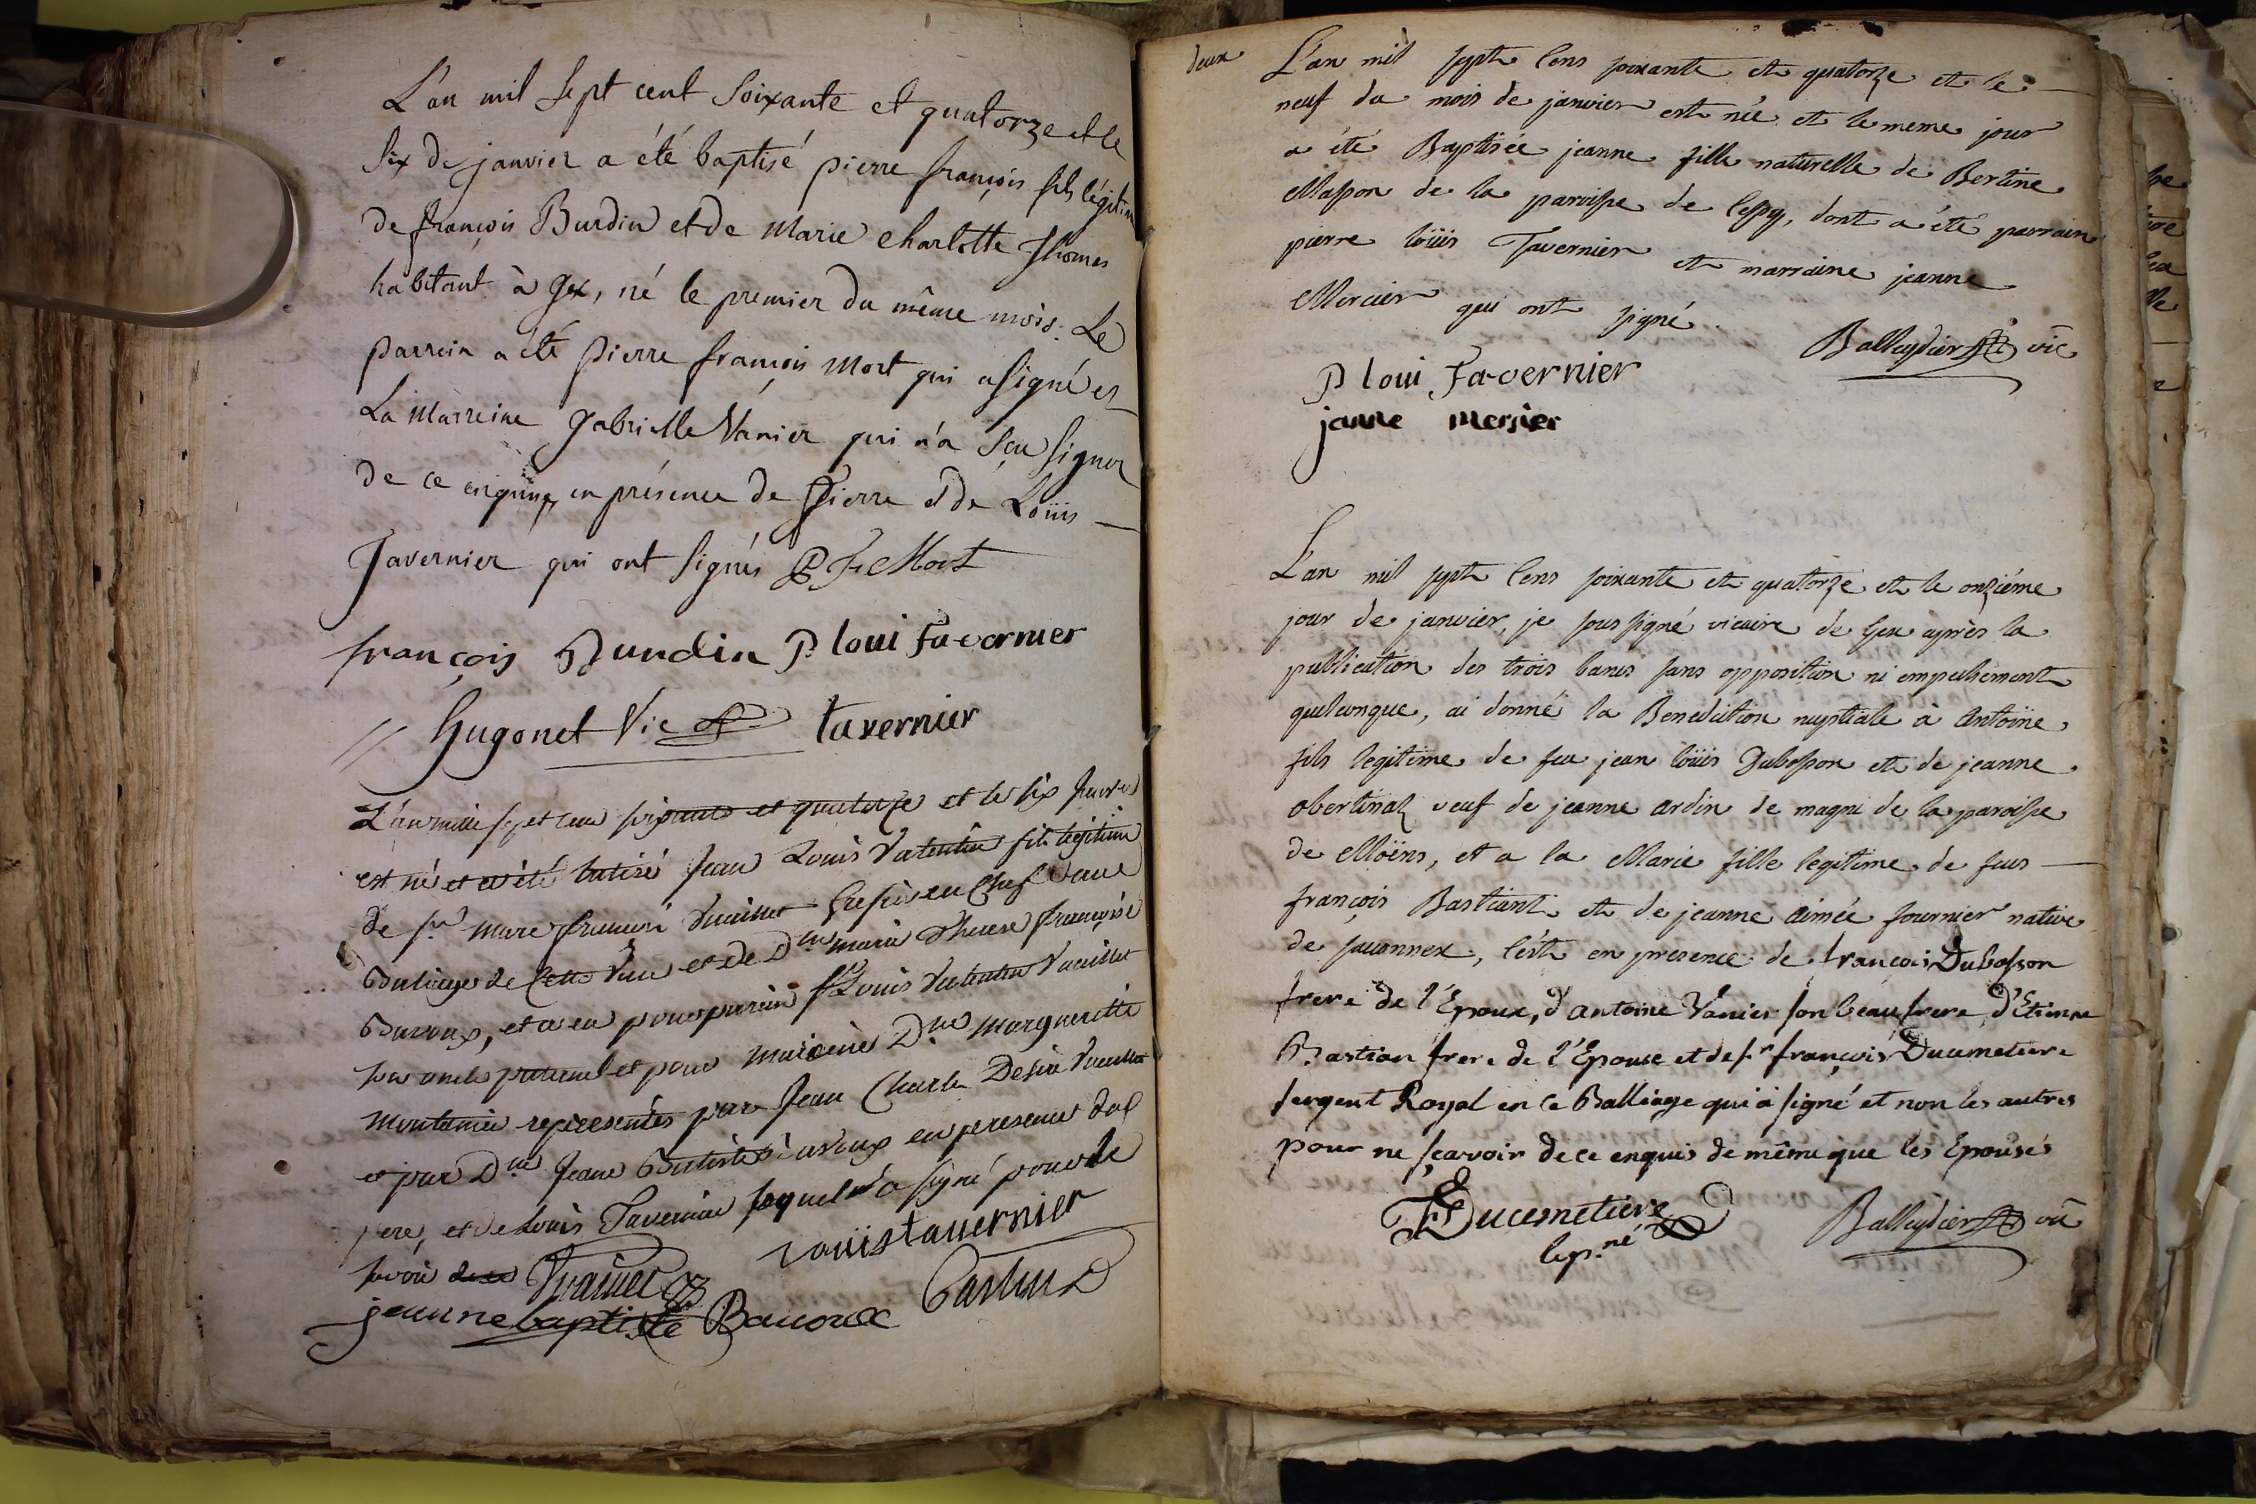 L'an mil sept cent soixante et quatorze et le
six de janvier a été baptisé pierre françois fils légitim
de françois Burdin et de Marie Charlotte Thomas
habitant à Gex, né le premier du même mois. Le
parrein a été pierre françois Mort qui a signé et
La Marreine Gabrielle Vanier qui n'a sçu signer
de ce enquise, en présence de Pierre et de Loüis
Tavernier qui ont signés P F Mort
françois Burdin P loui Tavernier
Hugonet Vic tavernier
L'an mil sept cens soixante et quatorze et le six Janvier
est né et a été batisé Jean Louis Valentin fils legitime
de sr Marc françois Vuaillet Greffier en Chef au
Baliage de Cette Ville et de Dlle marie Therese françoise
Baroux, et a eu pour parain sr Louis Valentin Vuaillet
son oncle paternel et pour Maraine Dlle Margueritte
Montanier representés par Jean Charle Desiré Vuaillet
et par Dlle Jeane Batiste Baroux en presence du
pere, et de Louis Tavernier lequel n'a signé pour le
savoir Vuaillet Loüis tauernier
jeanne baptiste Baroux
deux
L'an mil sept Cens soixante et quatorze et le
neuf du mois de janvier est née et le meme jour
a été Baptisée jeanne fille naturelle de Bertine
Masson de la paroisse de Cessy, dont a été parrain
pierre loüis Tavernier et marraine jeanne
Mercier qui ont signé
Balleydier vic
P loui Tavernier
janne mersier
L'an mil sept Cens soixante et quatorze et le onziéme
jour de janvier, je sous signé vicaire de Gex après la
publication des trois bancs sans opposition ni empechement
quelconque, ai donné la Benediction nuptiale à Antoine
fils legitime de feu jean loüis Dubosson et de jeanne
obertinaz veuf de jeanne ardin de magni de la paroisse
de Moëns, et a la Marie fille legitime de feus
françois Bastiant et de jeanne aimée fournier native
de sauonnex, Ce'st en presence de francois Dubosson
frere de l'Epoux, d'antoine Vanier son beau frere, d'Etienne
Bastian frere de l'Epouse et de sr françois Ducimetiere
sergent Royal en ce Balliage qui a signé et non les autres
pour ne sçavoir de ce enquis de même que les Epousés
F Ducimetiere
Balleydier vic